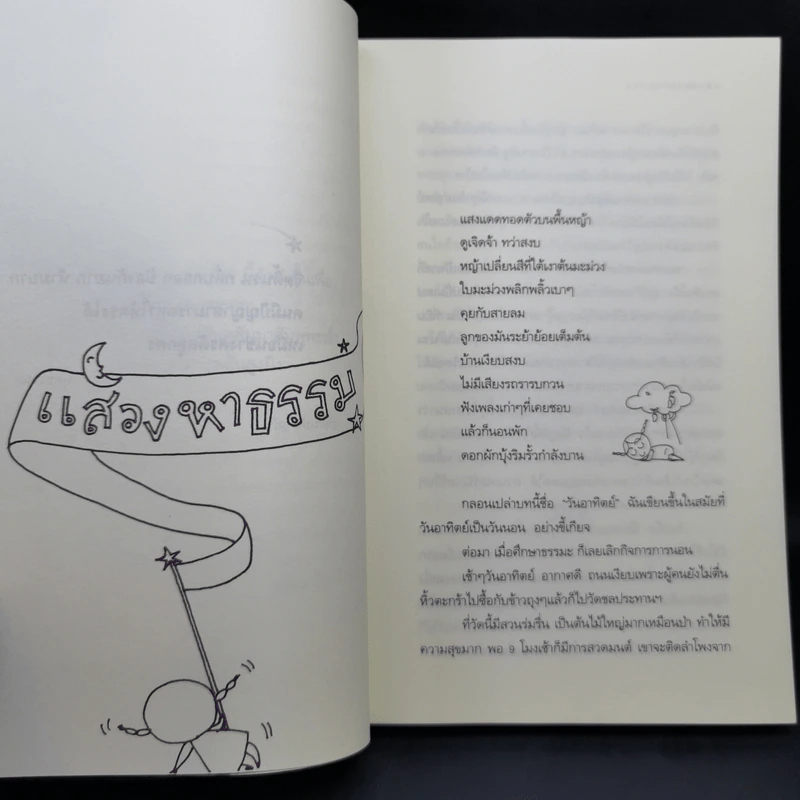 แสวงหาธรรม
แสงแดดทอดตัวบนพื้นหญ้า
ดูเจิดจ้า ทว่าสงบ
หญ้าเปลี่ยนสีที่ใต้เงาต้นมะม่วง
ใบมะม่วงพลิกพลิ้วเบาๆ
คุยกับสายลม
ลูกของมันระย้าย้อยเต็มต้น
บ้านเงียบสงบ
ไม่มีเสียงรถรารบกวน
ฟังเพลงเก่าๆที่เคยชอบ
แล้วก็นอนพัก
ดอกผักบุ้งริมรั้วกำลังบาน
กลอนเปล่าบทนี้ชื่อ "วันอาทิตย์" ฉันเขียนขึ้นในสมัยที่
วันอาทิตย์เป็นวันนอน อย่างขี้เกียจ
ต่อมา เมื่อศึกษาธรรมะ ก็เลยเลิกกิจการการนอน
เช้าๆวันอาทิตย์ อากาศดี ถนนเงียบเพราะผู้คนยังไม่ตื่น
หิ้วตะกร้าไปซื้อกับข้าวถุงๆแล้วก็ไปวัดชลประทานฯ
ที่วัดนี้มีสวนร่มรื่น เป็นต้นไม้ใหญ่มากเหมือนป่า ทำให้มี
ความสุขมาก พอ ๙ โมงเช้าก็มีการสวดมนต์ เขาจะติดลำโพงจาก